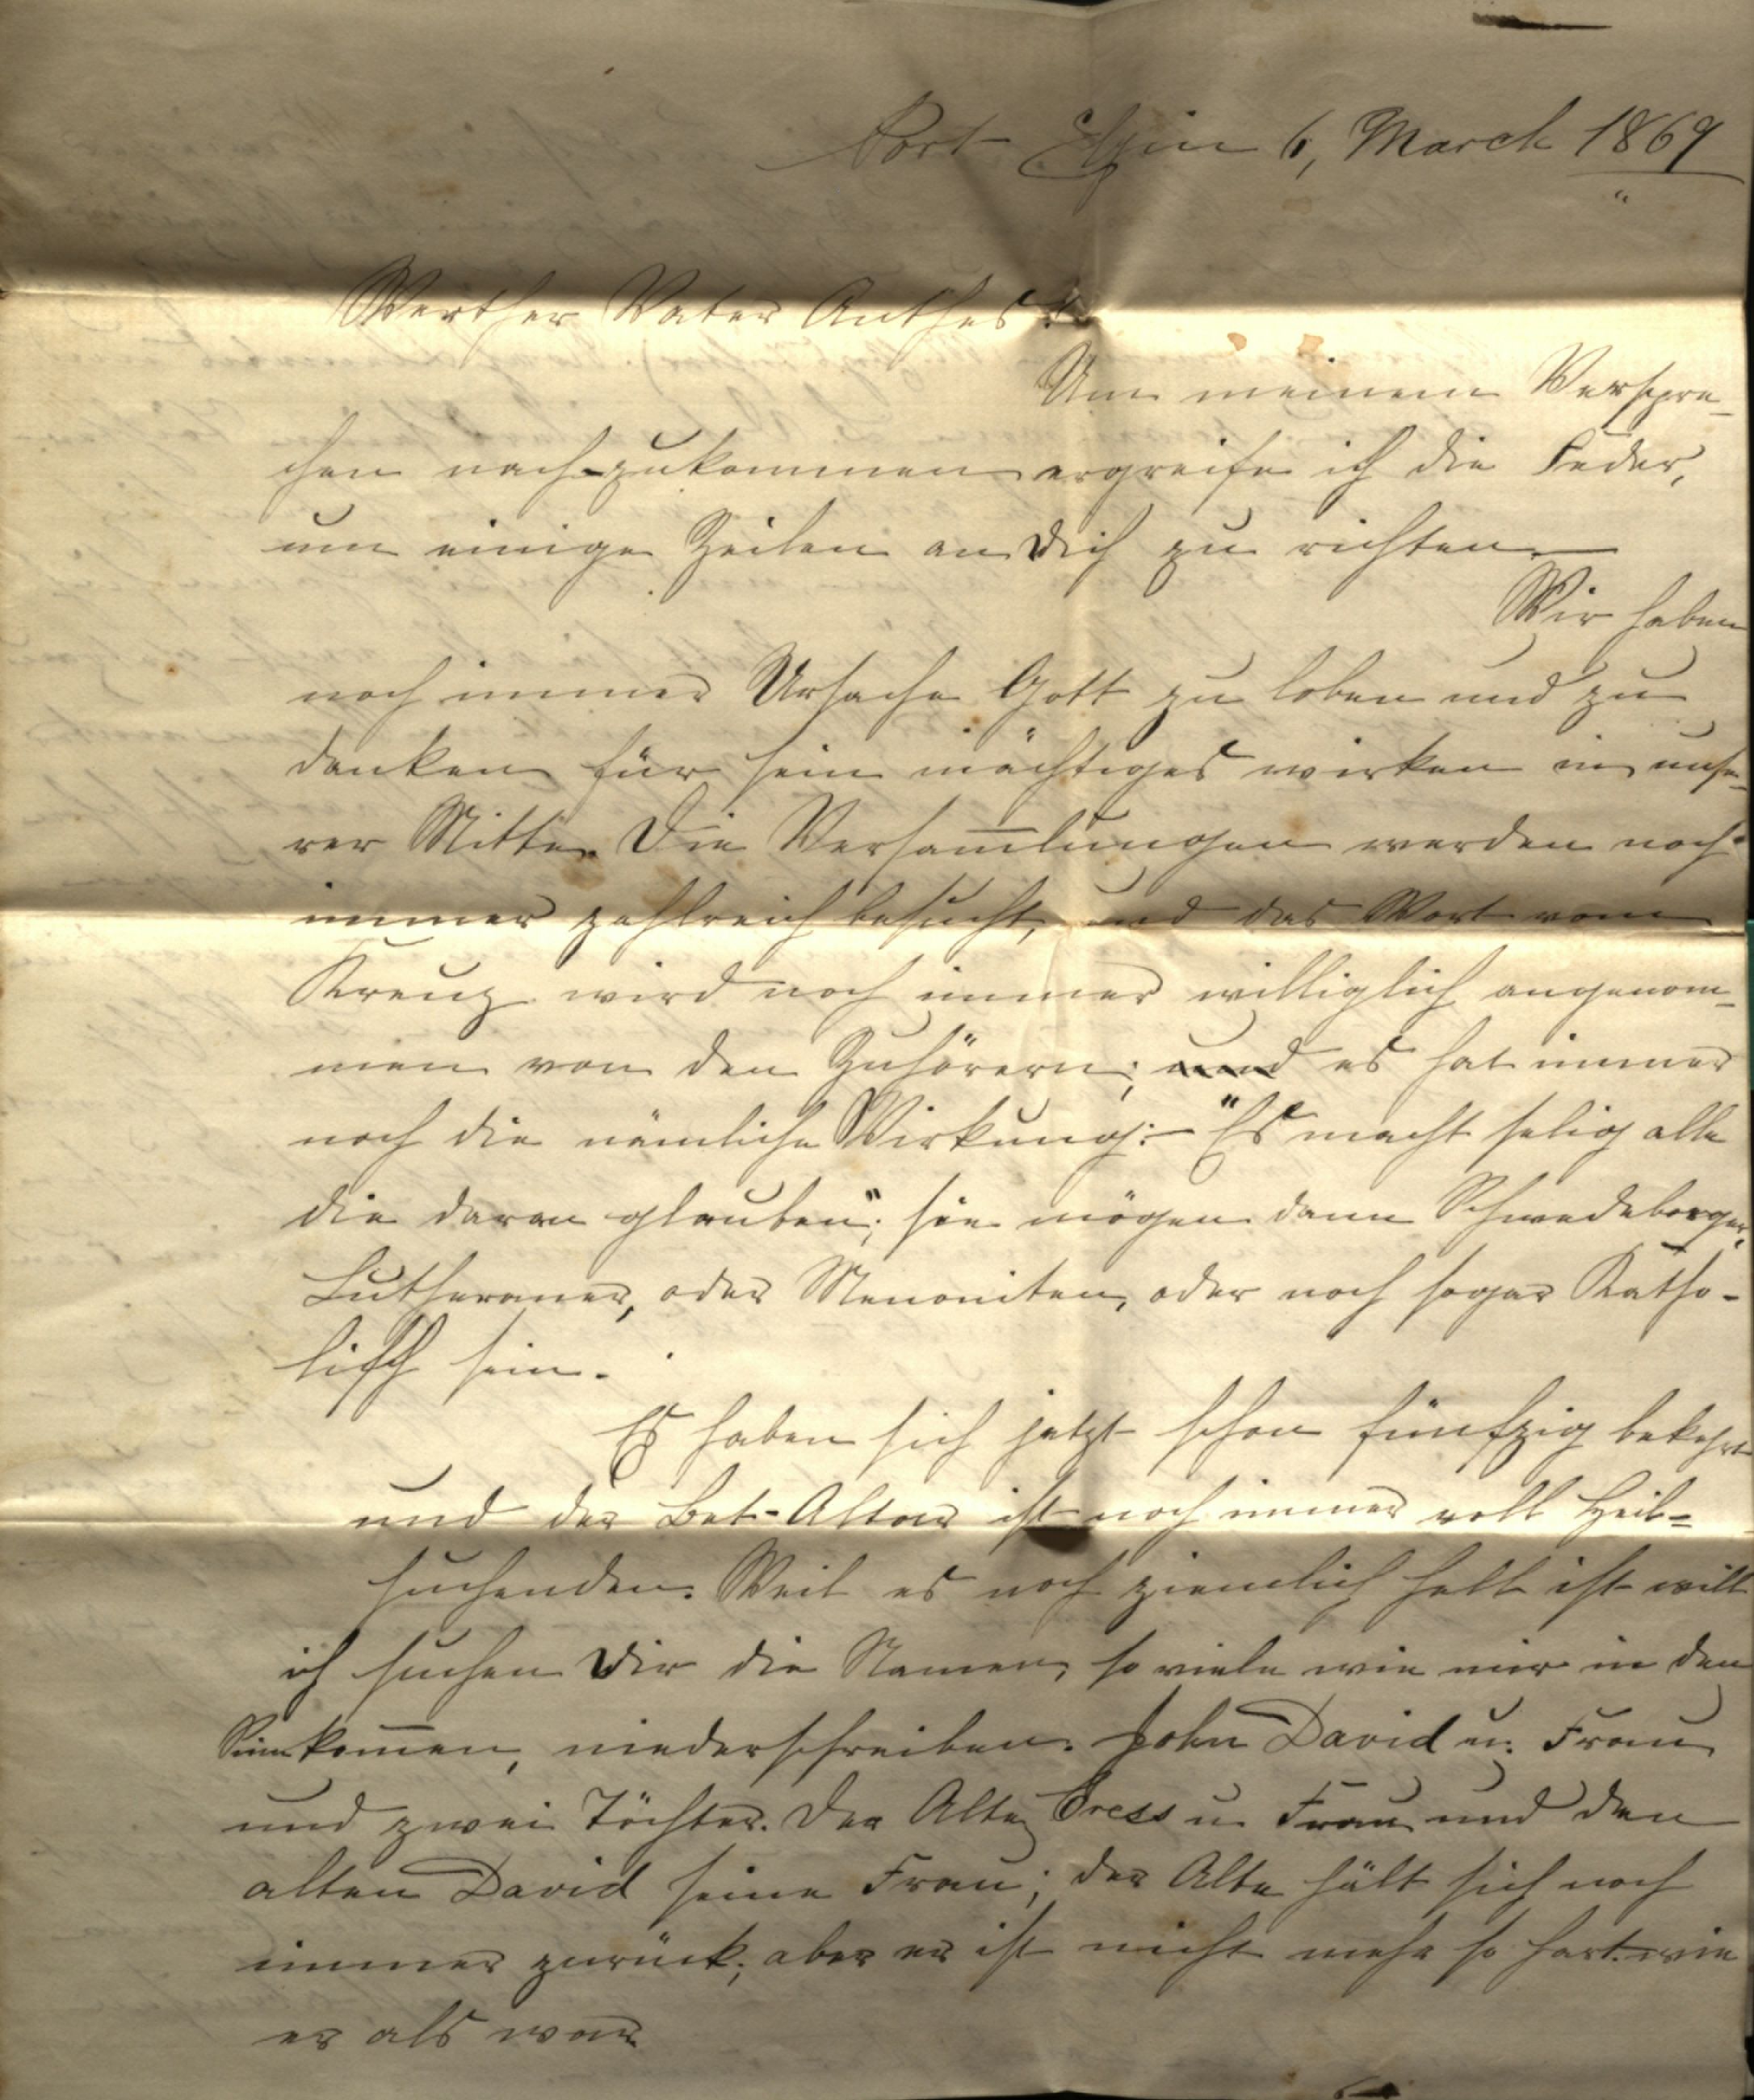 Port Elgin 6, March 1869
Werther Vater Anthes!
Um meinem Verspre-
chen nachzukommen ergreife ich die Feder,
um einige Zeilen an Dich zu richten.
Wir haben
noch immer Ursache Gott zu loben und zu
danken für sein mächtiges wirken in unse-
rer Mitte. Die Versam̅lungen werden noch
immer zahlreich besucht, und das Wort vom
Kreuz wird noch immer williglich angenom-
men von den Zuhörern; und es hat immer
noch die nämliche Wirkung:- "Es macht selig alle
die daran glauben"; sie mögen dann Schwedeborger,
Lutheraner, oder Menoniten, oder noch sogar Katho-
lisch sein.
Es haben sich jetzt schon fünfzig bekehrt
und der Bet-Altar ist noch immer voll Heil-
suchenden. Weil es noch ziemlich hell ist will
ich suchen Dir die Namen, so viele wie mir in den
Sinn kom̅en, niederschreiben. John David u. Frau
und zwei Töchter. Der Alte Cress u. Frau und den
alten David seine Frau; der Alte hält sich noch
immer zurück; aber er ist nicht mehr so hart wie
er als war